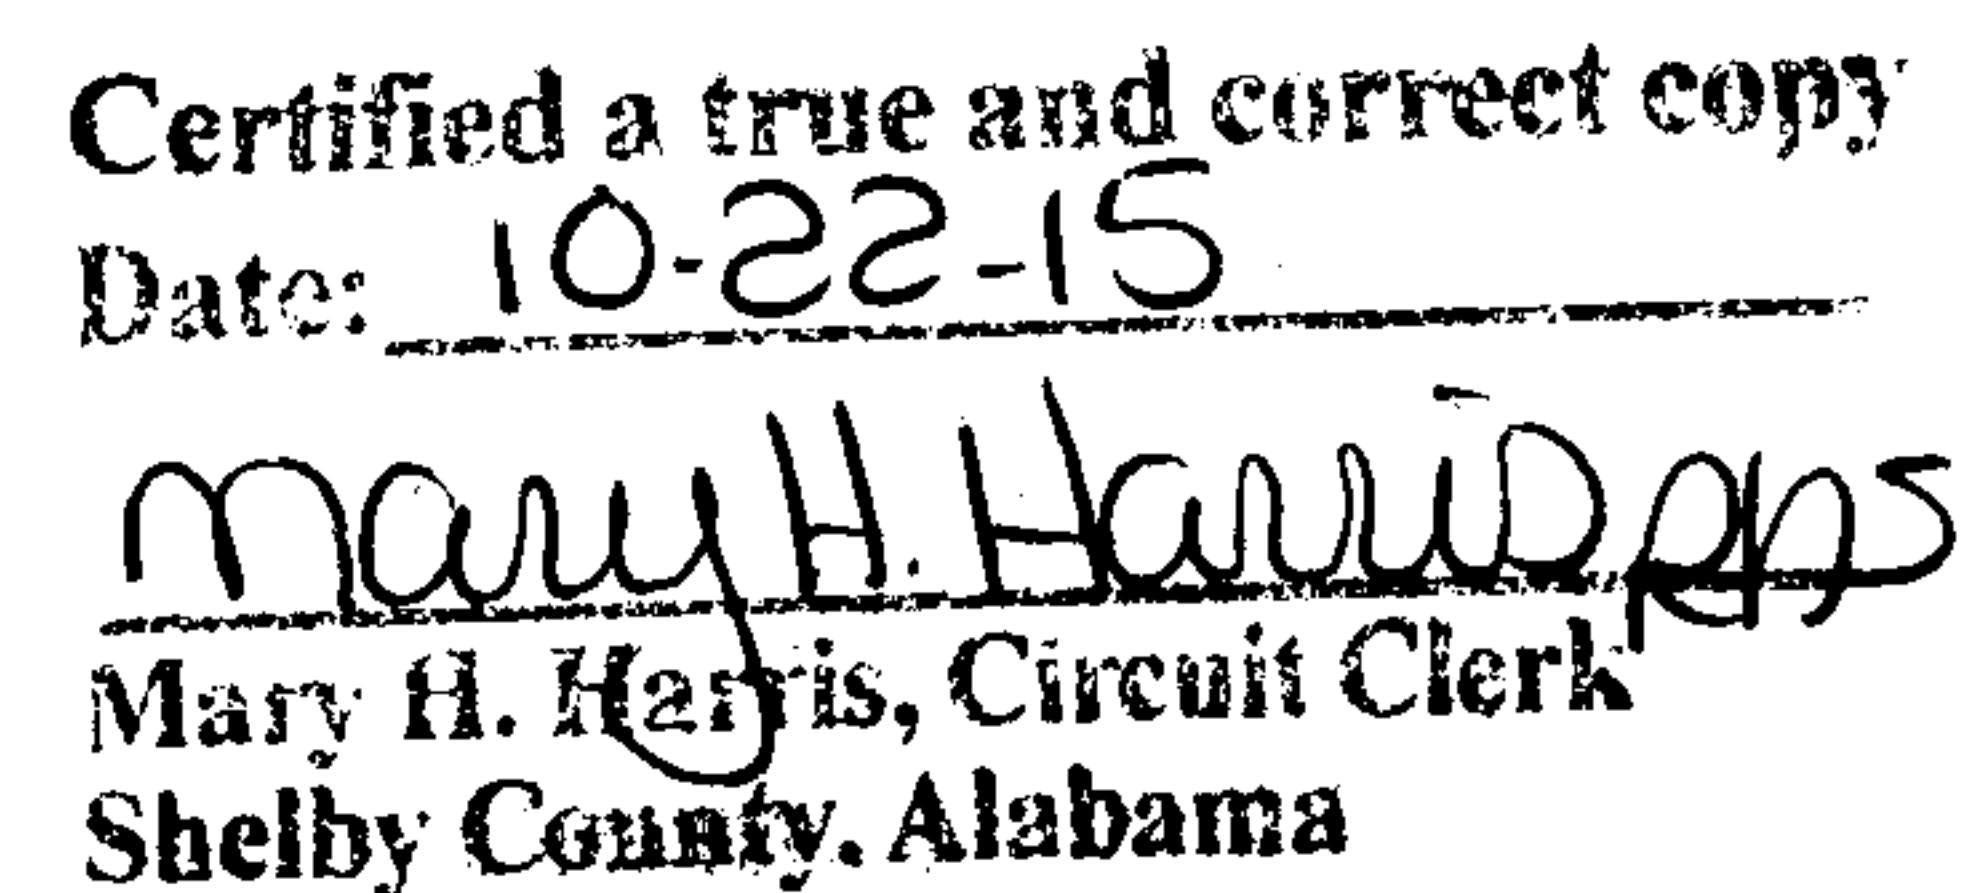 Certified a true and correct copy
Date: 10-22-15
Mary H. Harris
Mary H. Harris, Circuit Clerk
Shelby County, Alabama